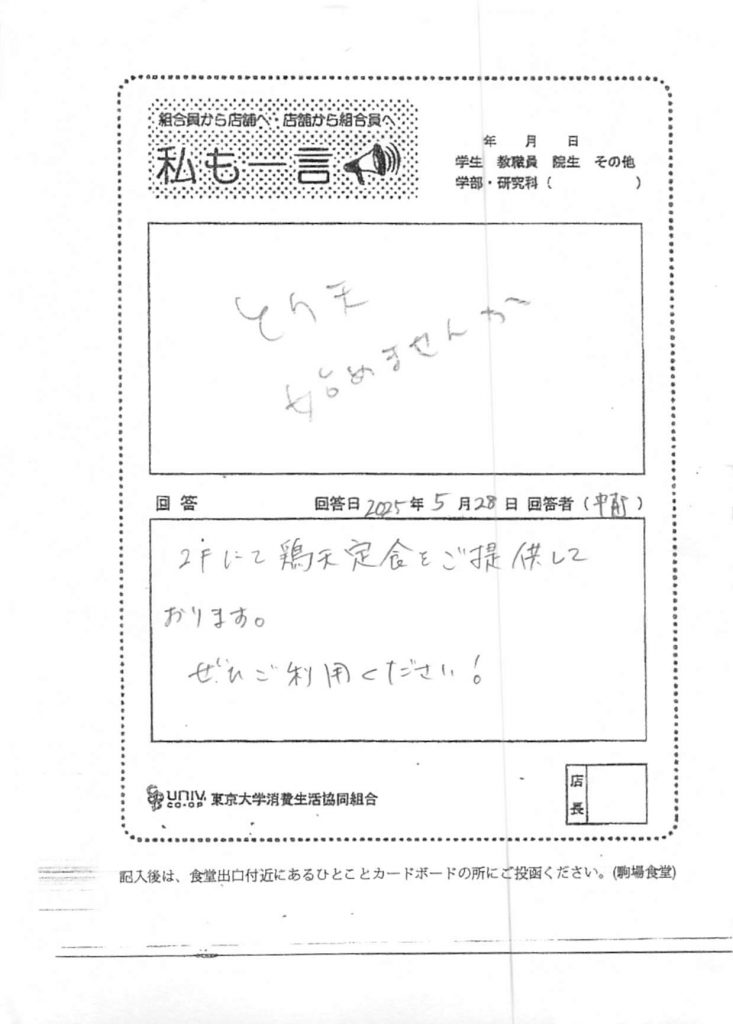 組合員から店舗へ・店舗から組合員へ
私も一言
年 月 日
学生 教職員 院生 その他
学部・研究科 ( )
とり天
始めませんか
回答 回答日 2025年 5月28日 回答者 ( )
2Fにて鶏天定食をご提供して
おります。
ぜひご利用ください!
UNIV. CO-OP 東京大学消費生活協同組合
店長
記入後は、食堂出口付近にあるひとことカードボードの所にご投函ください。(駒場食堂)